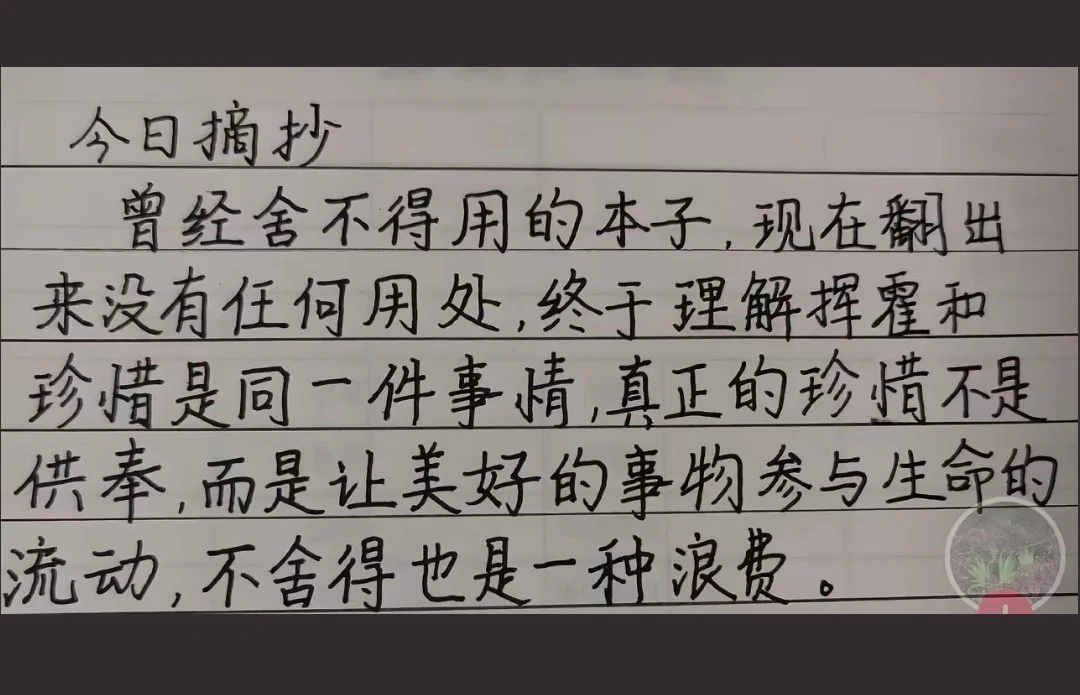 今日摘抄
曾经舍不得用的本子,现在翻出
来没有任何用处,终于理解挥霍和
珍惜是同一件事情,真正的珍惜不是
供奉,而是让美好的事物参与生命的
流动,不舍得也是一种浪费。